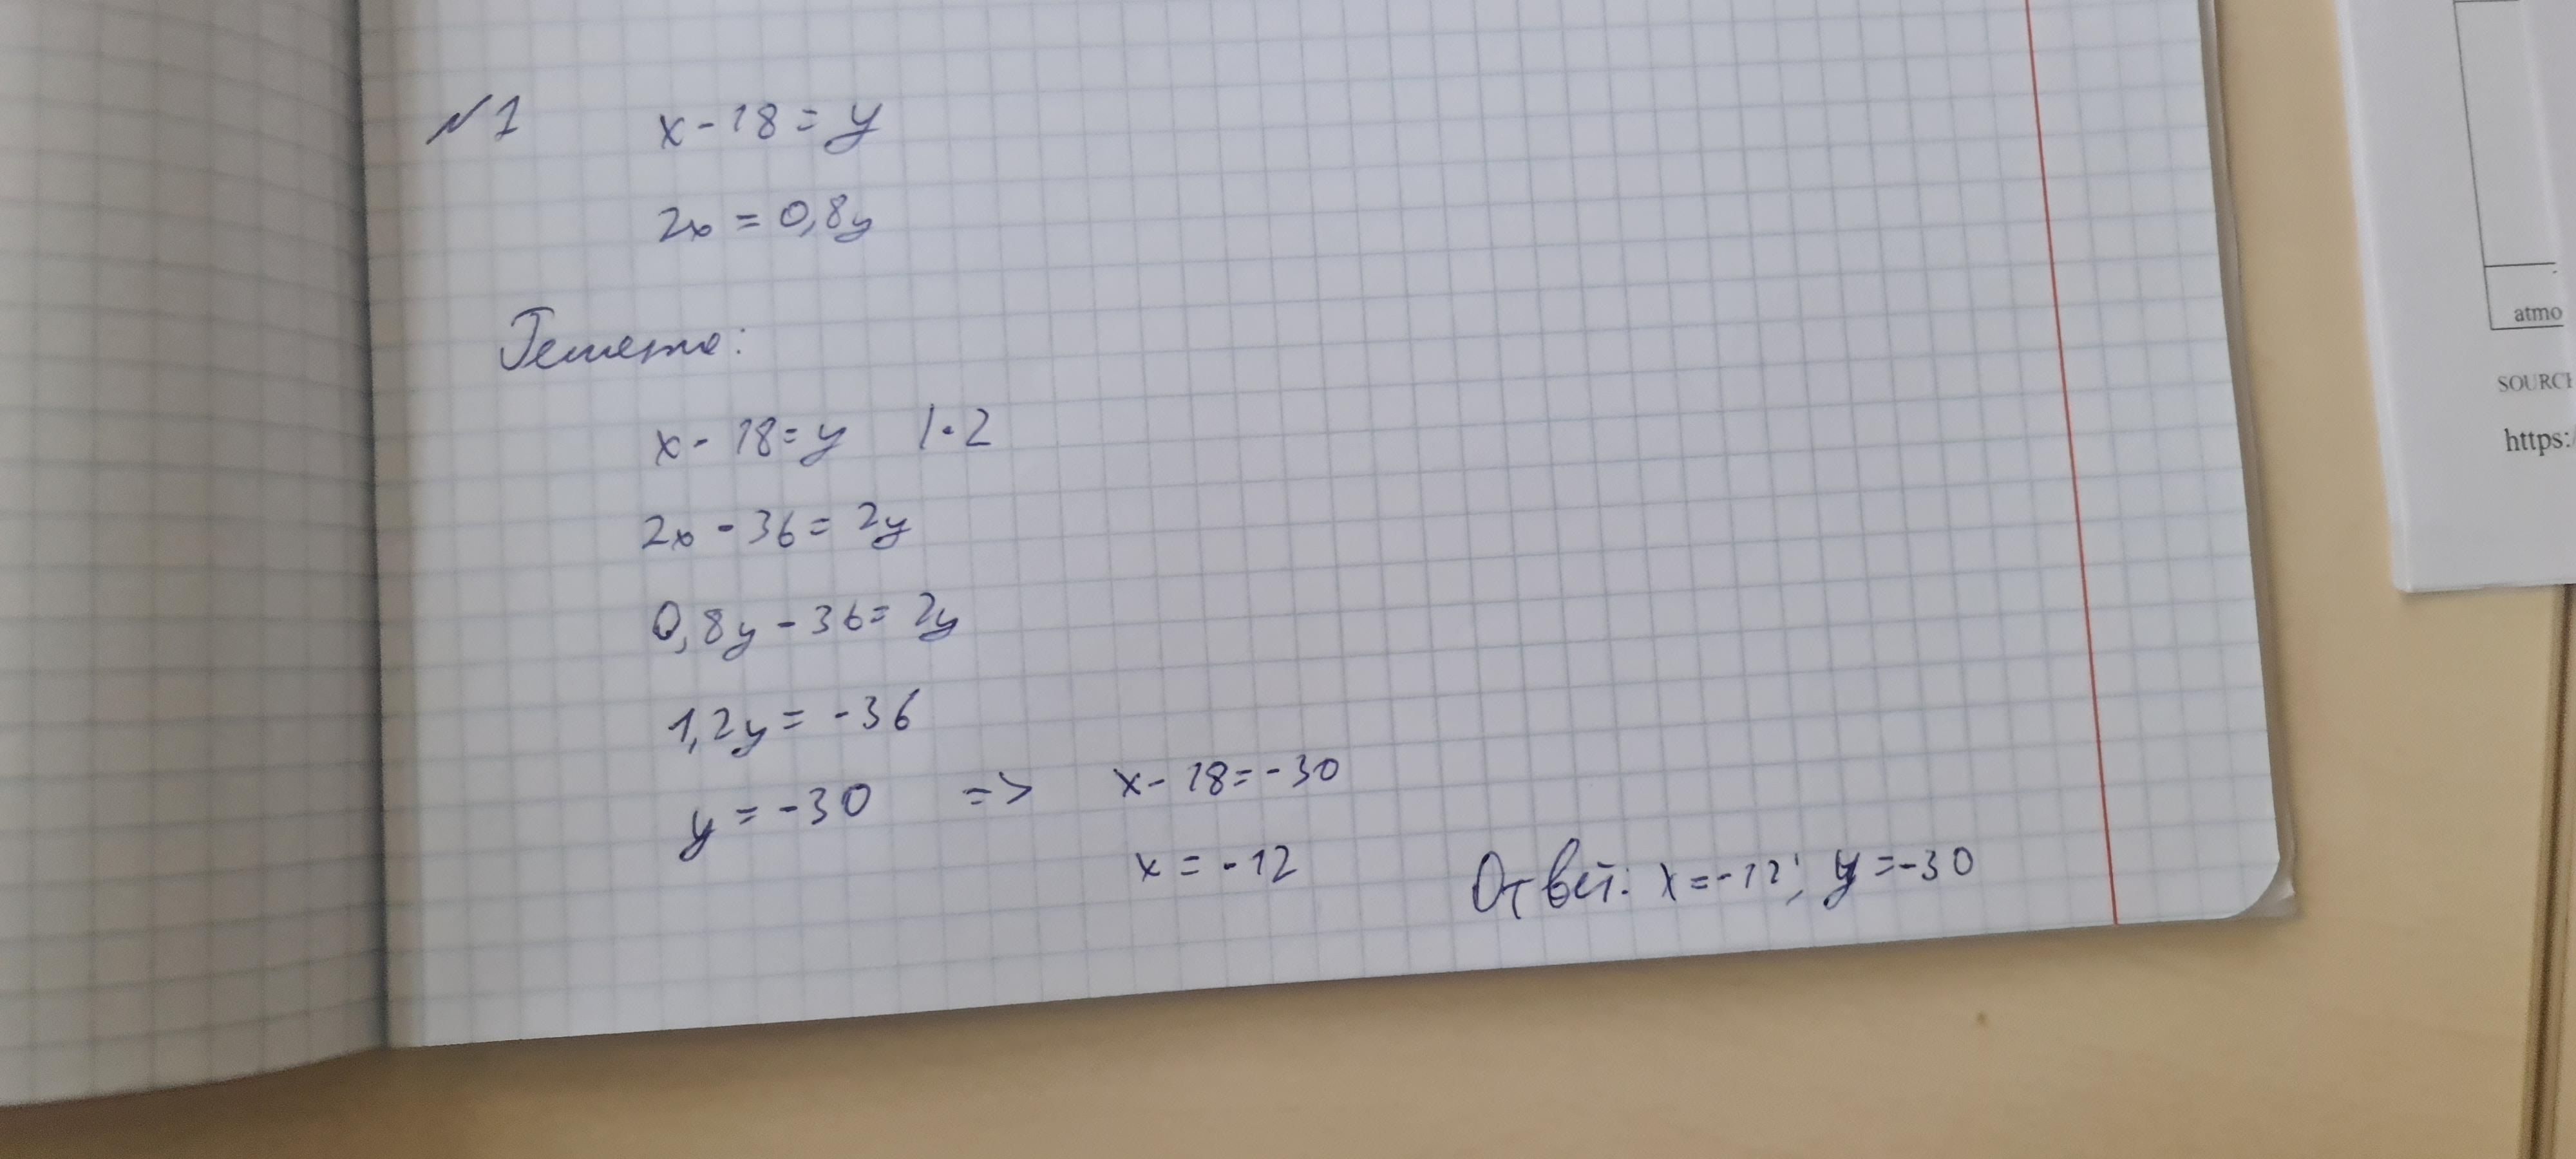 №1
x - 18 = y
2x = 0,8y
Решение:
x - 18 = y |·2
2x - 36 = 2y
0,8y - 36 = 2y
1,2y = -36
y = -30 => x - 18 = -30
x = -12
Ответ: x = -12; y = -30
atmo
SOURCE
https:/